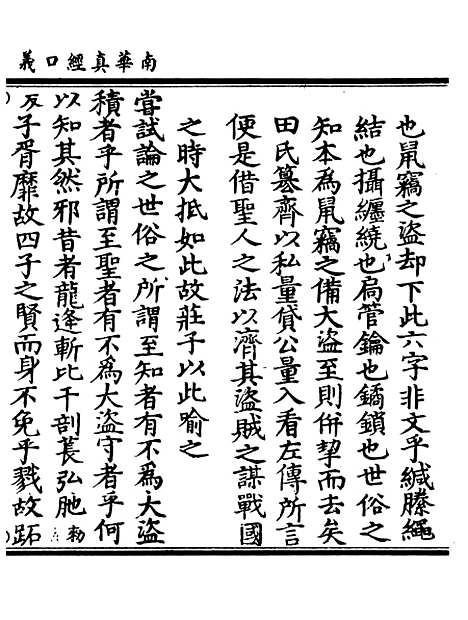 南華真經口義
也鼠竊之盜却下此六字非文乎緘縢繩
結也攝纏繞也扃管鑰也鐍鎖也世俗之
知本為鼠竊之備大盜至則併挈而去矣
田氏簒齊以私量貸公量入看左傳所言
便是借聖人之法以濟其盜賊之謀戰國
之時大抵如此故莊子以此喻之
嘗試論之世俗之所謂至知者有不爲大盜
積者乎所謂至聖者有不爲大盜守者乎何
以知其然邪昔者龍逄斬比干剖萇弘胣
子胥靡故四子之賢而身不免乎戮故跖